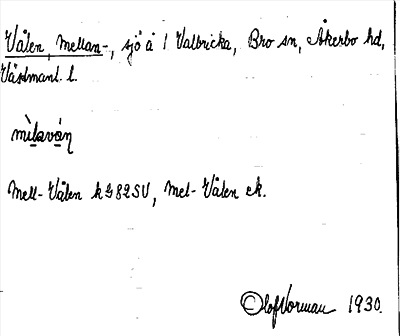 Vålen, Mellan-, sjö å 1 Valbricka, Bro sn, Åkerbo hd,
Västmanl. l.
Mell-Vålen k G82SV, Mel-Vålen ek.
Olof Norman 1930.